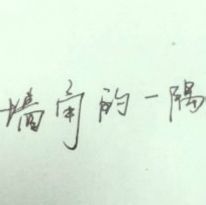 墙角的一隅